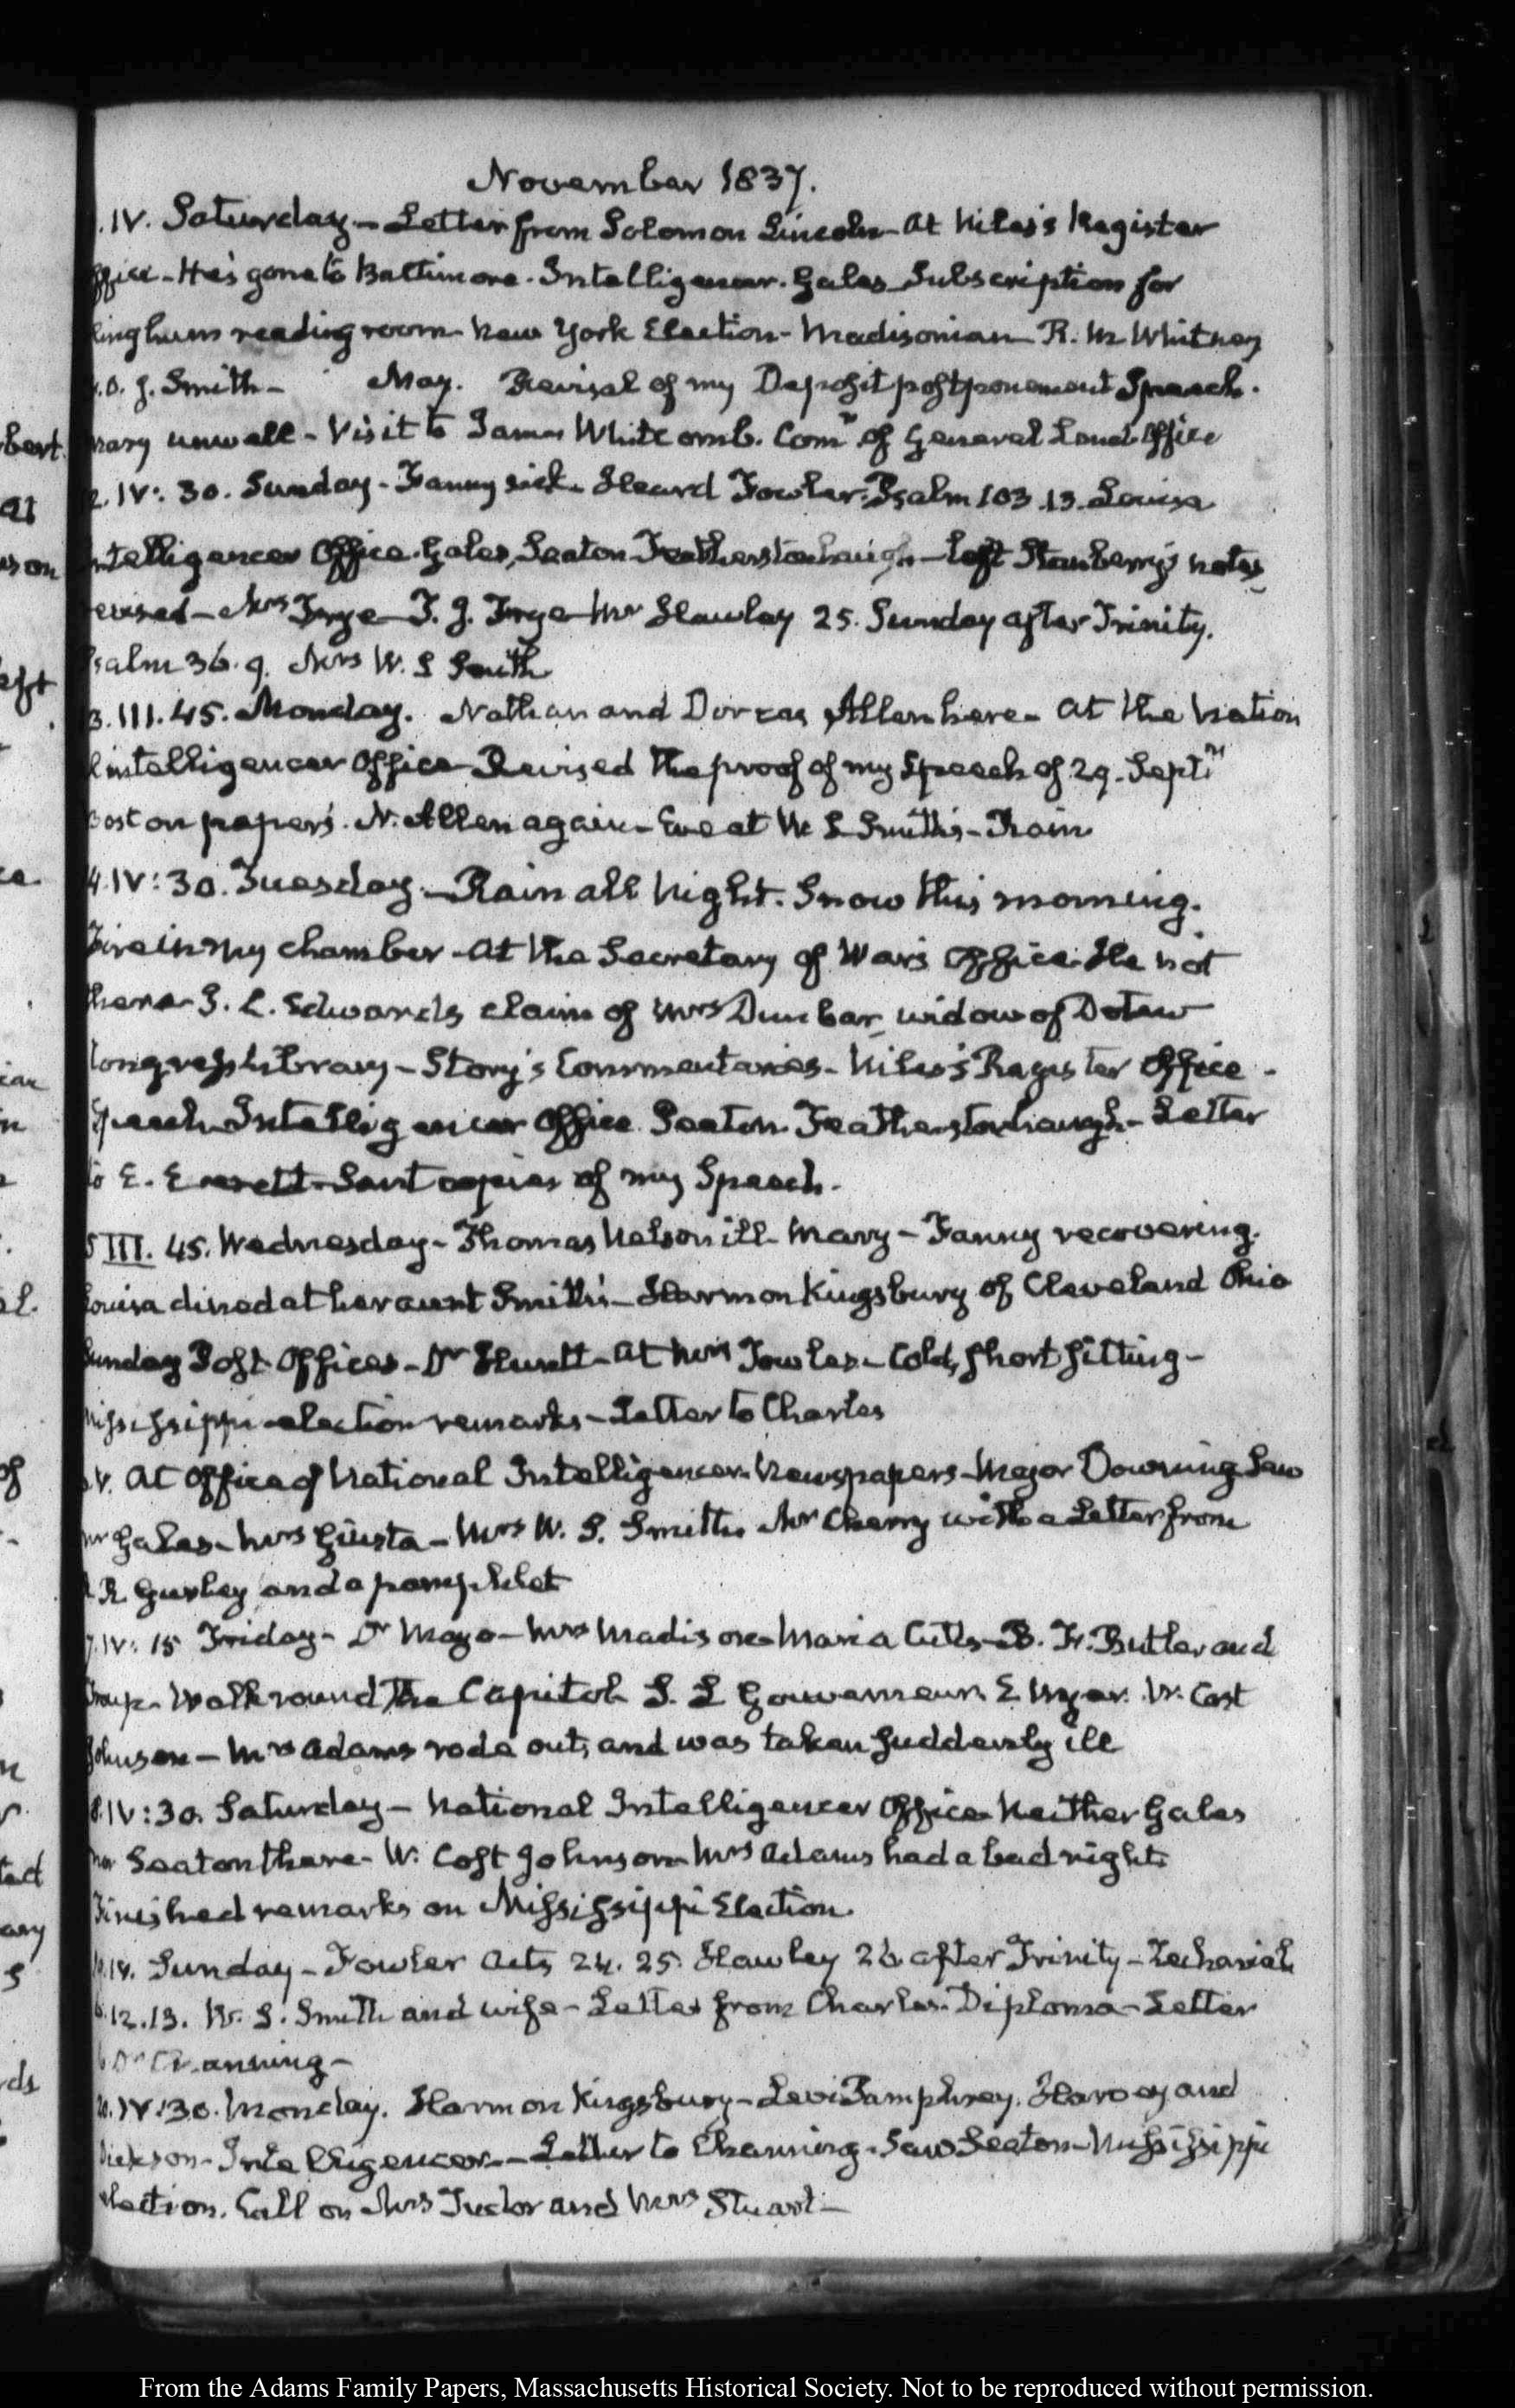 November 1837.
.IV. Saturday – Letter from Solomon Lincoln – at Niles's Register
ffice – He's gone to Baltimore. Intelligencer. Gales Subscription for
lingham reading room – New York Election – Madisonian – R. M Whitney
.O. J. Smith – May. Revisal of my Deposit postponement Speech.
Mary unwell – Visit to James Whitcomb. Comr of General Land Office
2. IV: 30. Sunday – Fanny sick – Heard Fowler. Psalm 103.13. Louisa
ntelligencer Office. Gales, Seaton Featherstonhaugh – left Stansberry's notes
revised – Mrs Frye – T. J. Frye – Mr Hawley 25. Sunday after Trinity.
Psalm 36.9. Mrs W. S Smith
3. III. 45. Monday. Nathan and Dorcas Allen here – at the Nation
l intelligencer Office – Revised the proof of my Speech of 29. Septr
Boston papers. N. Allen again – Eve at W. S Smith's – Rain
4. IV: 30. Tuesday – Rain all Night. Snow this morning.
Fire in my chamber – at the Secretary of War's Office. He not
there – J. L. Edwards claim of Mrs Dunbar, widow of
Congress Library – Story's Commentaries – Niles's Register Office –
Speech – Intelligencer Office Seaton Featherstonhaugh – Letter
to E. Everett – Sent copies of my Speech.
5 III. 45. Wednesday – Thomas Nelson ill – Mary – Fanny recovering.
Louisa dined at her aunt Smith's – Harmon Kingsbury of Cleveland Ohio
Sunday Post Offices – Dr Huntt – at Mrs Towles – Cold, short sitting –
Mississippi election remarks – Letter to Charles
.V. At Office of National Intelligencer. Newspapers – Major Downing. Saw
Mr Gales – Mrs Giusta – Mrs W. S. Smith. Mr Cherry with a Letter from
R. R Gurley and a pamphlet
7. IV: 15 Friday – Dr Mayo – Mrs Madison – Maria Cutts – B. F. Butler and
Troup – Walk round the Capitol – S. L Gouverneur. E Wyer. W. Cost
Johnson – Mrs Adams rode out, and was taken suddenly ill
8. IV: 30. Saturday – National Intelligencer Office – Neither Gales
nor Seaton there – W. Cost Johnson – Mrs Adams had a bad night.
Finished remarks on Mississippi Election.
Sunday – Fowler Acts 24. 25. Hawley 26. after Trinity – Zechariah
6.12.13. W. S. Smith and wife – Letter from Charles. Diploma – Letter
to Dr Channing –
20. IV: 30. Monday. Harmon Kingsbury – Levi Pumphrey. Harvey and
Dickson – Intelligencer – Letter to Channing – Saw Seaton – Mississippi
election. Call on Mrs Tudor and Mrs Stuart –
From the Adams Family Papers, Massachusetts Historical Society. Not to be reproduced without permission.